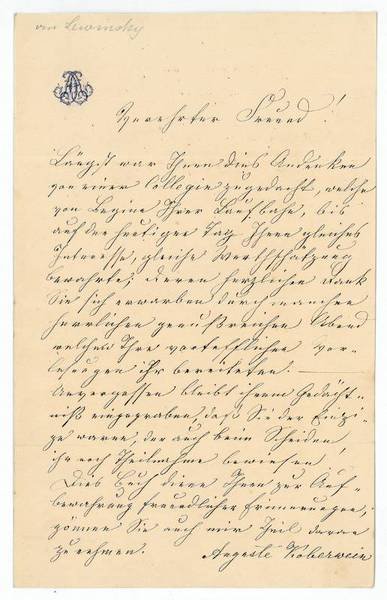 an Lewinsky
Verehrter Freund!
Längst war Ihnen dies Andenken
von einer Collegin zugedacht, welche
von Beginn Ihrer Laufbahn, bis
auf den heutigen Tag Ihnen gleiches
Interesse, gleiche Werthschätzung
bewahrte; deren herzlichen Dank
Sie sich erwarben durch manchen
herrlichen genußreichen Abend
welchen Ihre vortrefflichen Vor-
lesungen ihr bereiteten. —
Unvergessen bleibt ihrem Gedächt-
niß eingegraben, daß Sie der Einzi-
ge waren, der auch beim Scheiden
ihr noch Theilnahme bewiesen!
Dies Buch diene Ihnen zur Auf-
bewahrung freundlicher Erinnerungen;
gönnen Sie auch mir Theil daran
zu nehmen. Auguste Koberwein